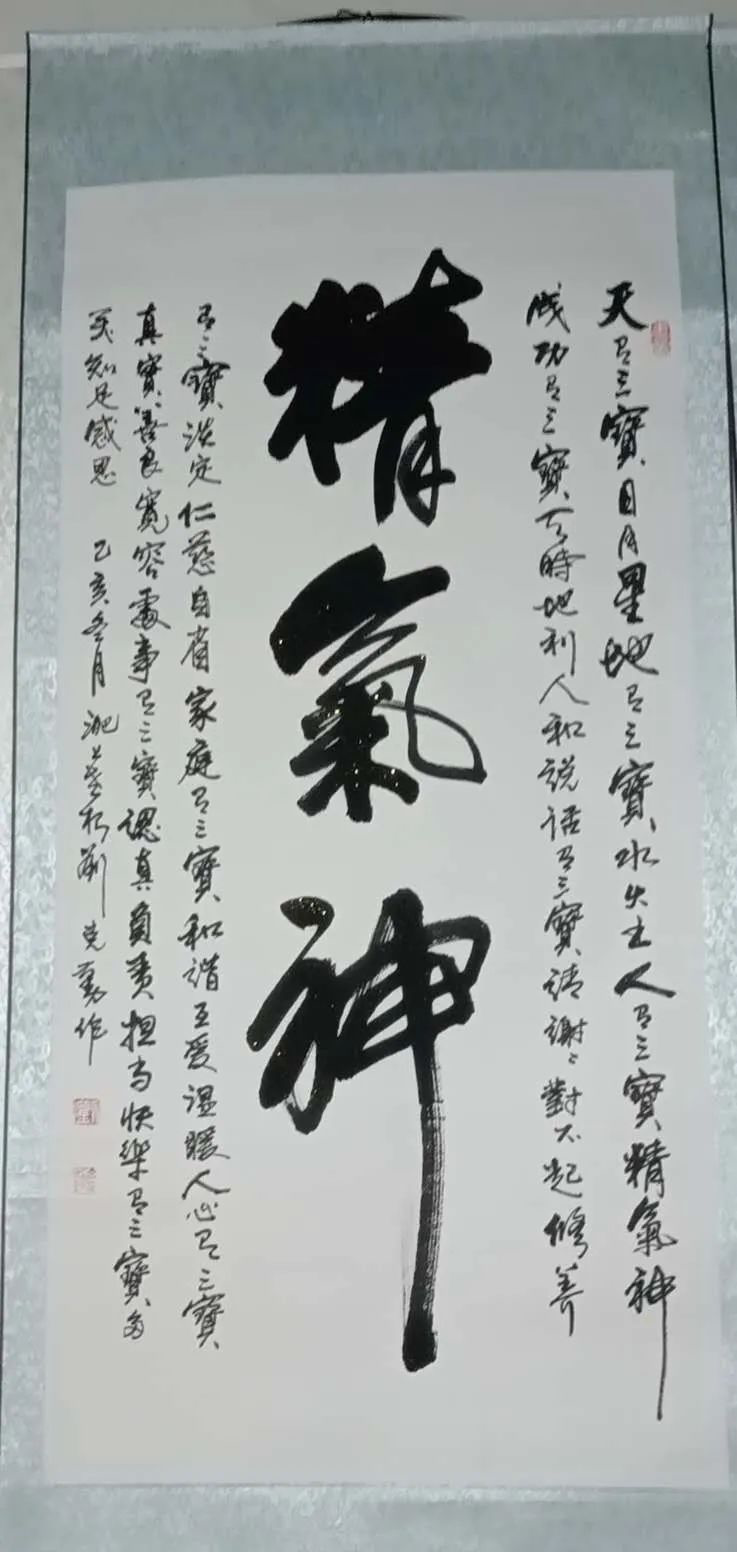 天有三寶日月星地有三寶水火土人有三寶精氣神
成功有三寶天時地利人和说话有三寶请謝謝對不起修养
精氣神
有三寶淡定仁慈自省家庭有三寶和谐互爱温暖人心有三寶
真實善良宽容處事有三寶認真負责担当快樂有三寶
知足感恩 己亥冬月 克勇作